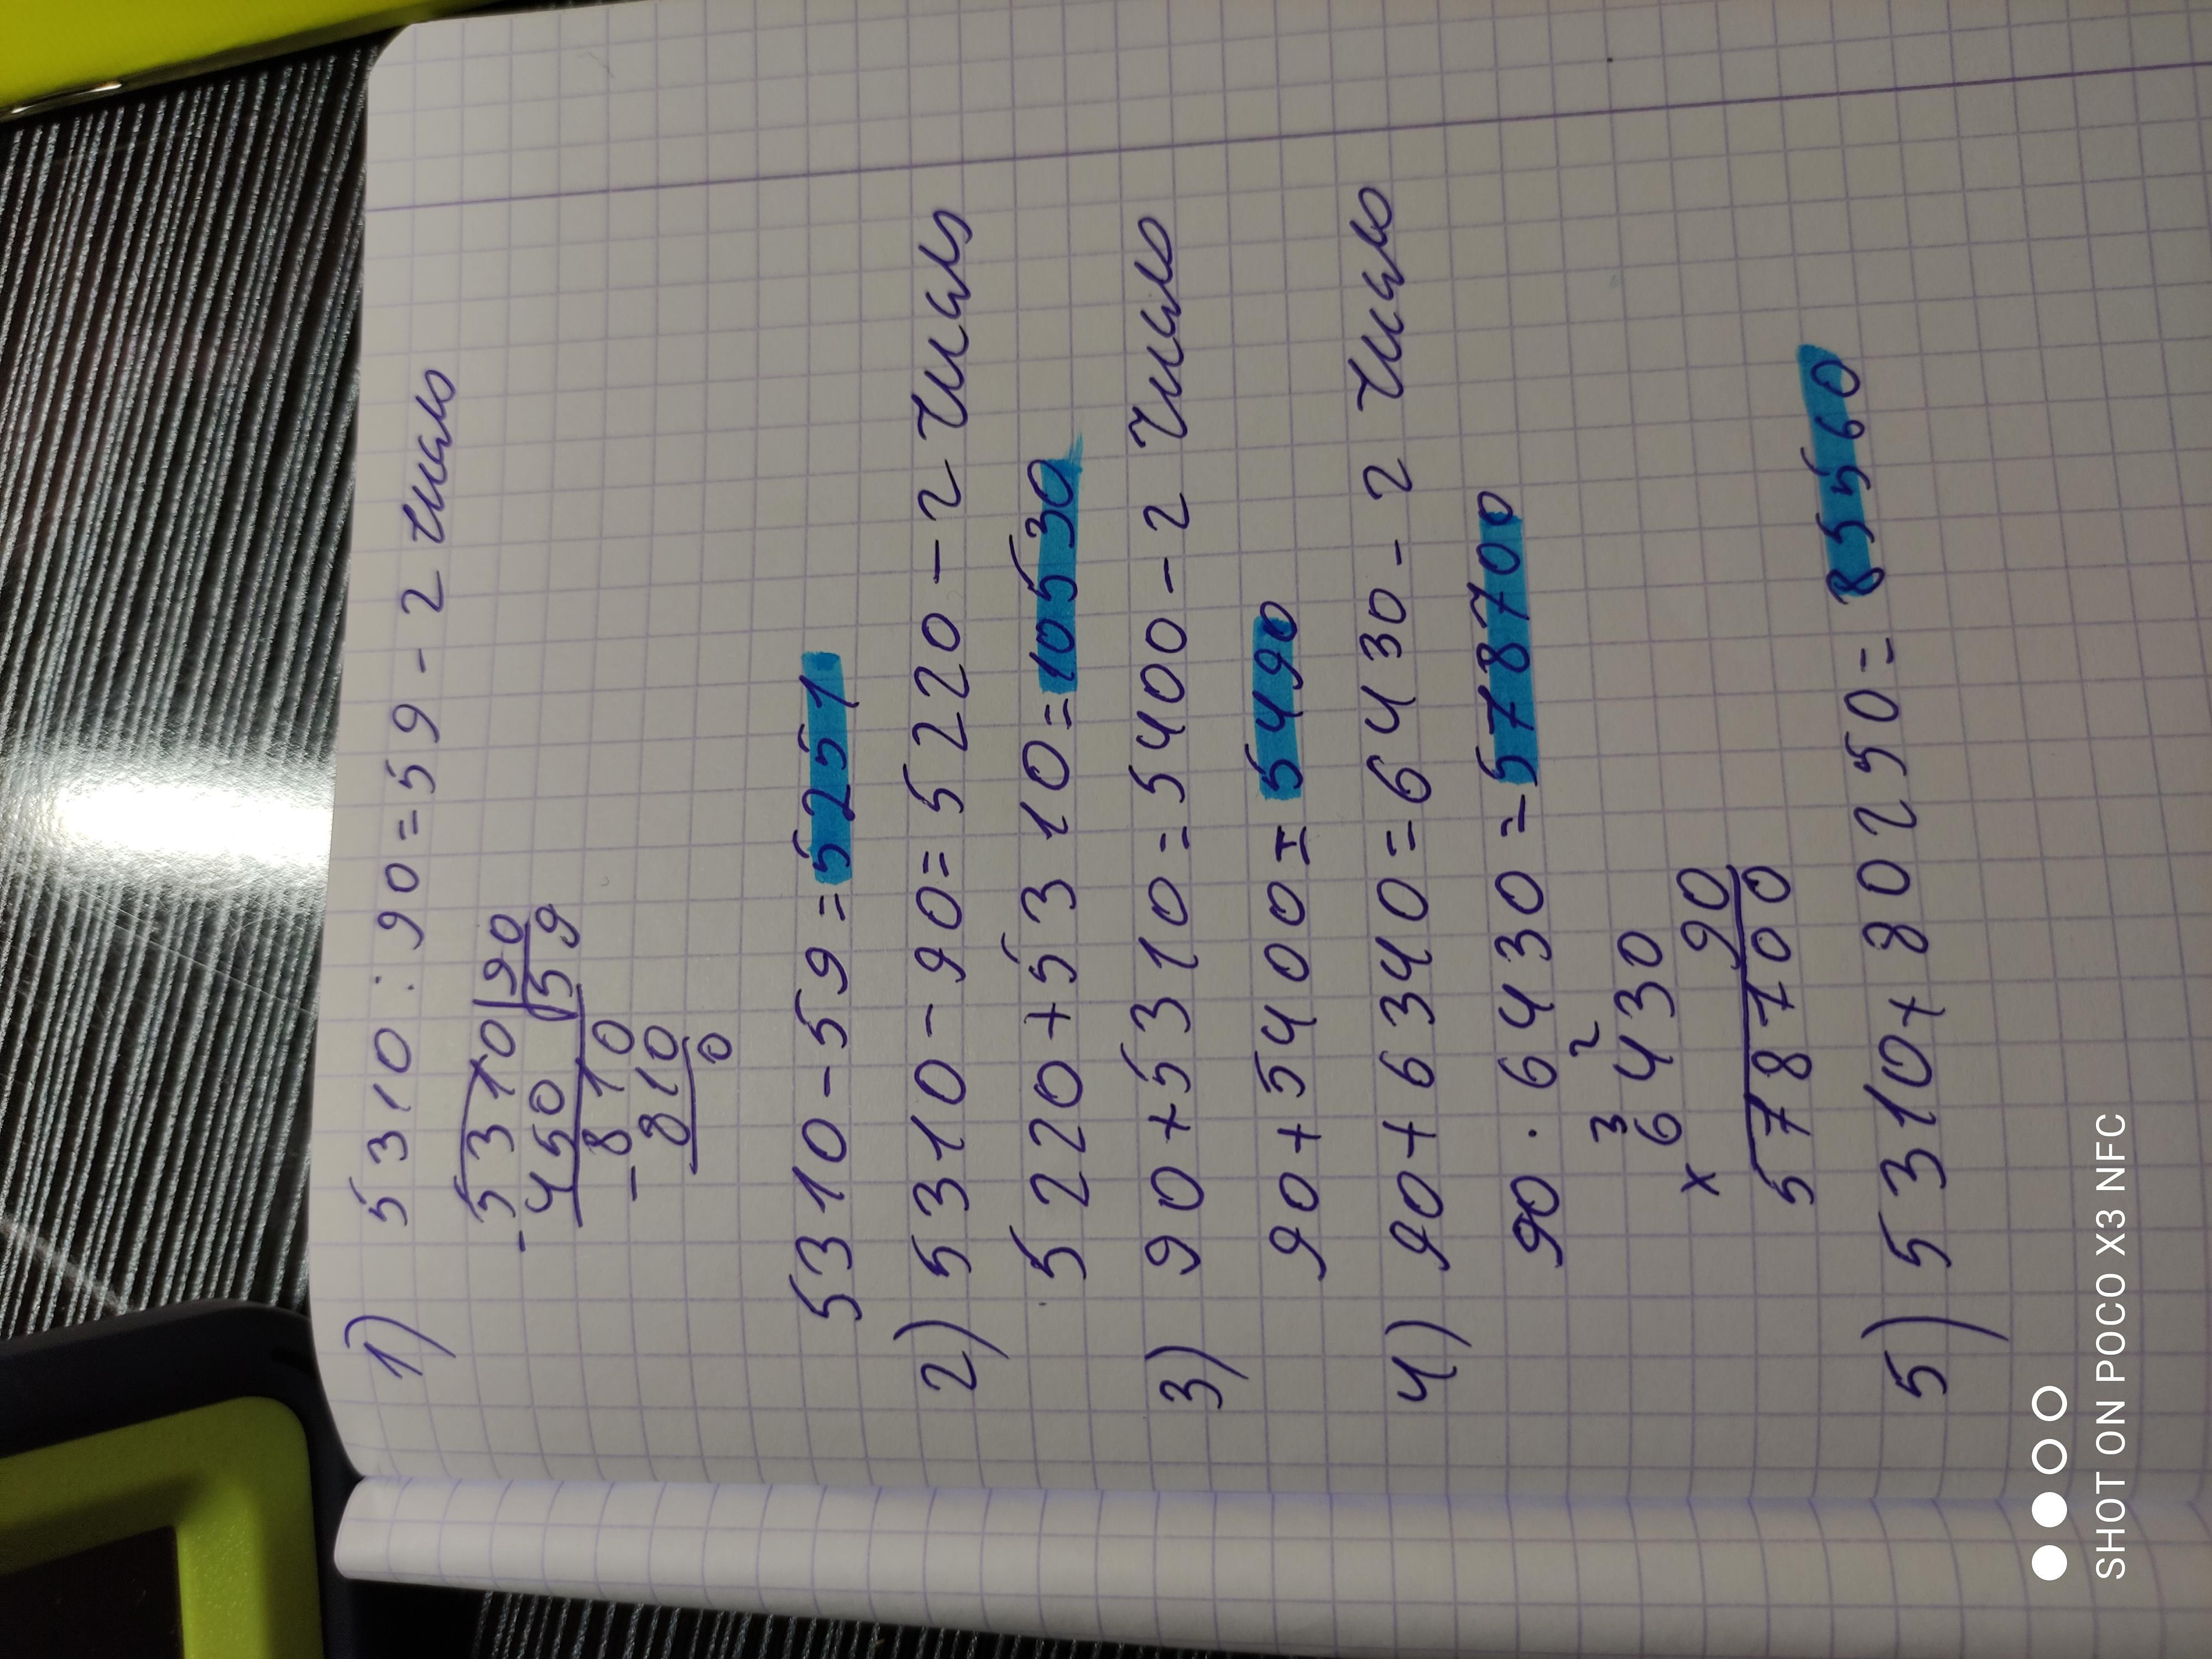 1) 5310:90=59-2 число
-5310|90
450 |59
-810
810
0
5310-59=5251
2) 5310-90=5220-2 число
5220+5310=10530
3) 90+5310=5400-2 число
90+5400=5490
4) 90+6340=6430-2 число
90·6430=578700
3 2
x 6430
90
578700
5) 5310+80250=85560
SHOT ON POCO X3 NFC